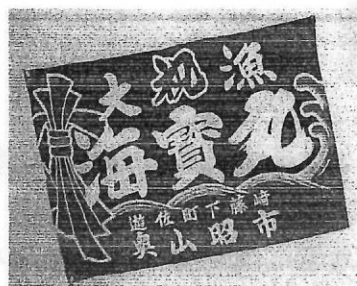 大祝漁
海寶丸
遊佐町下藤崎
奥山昭市